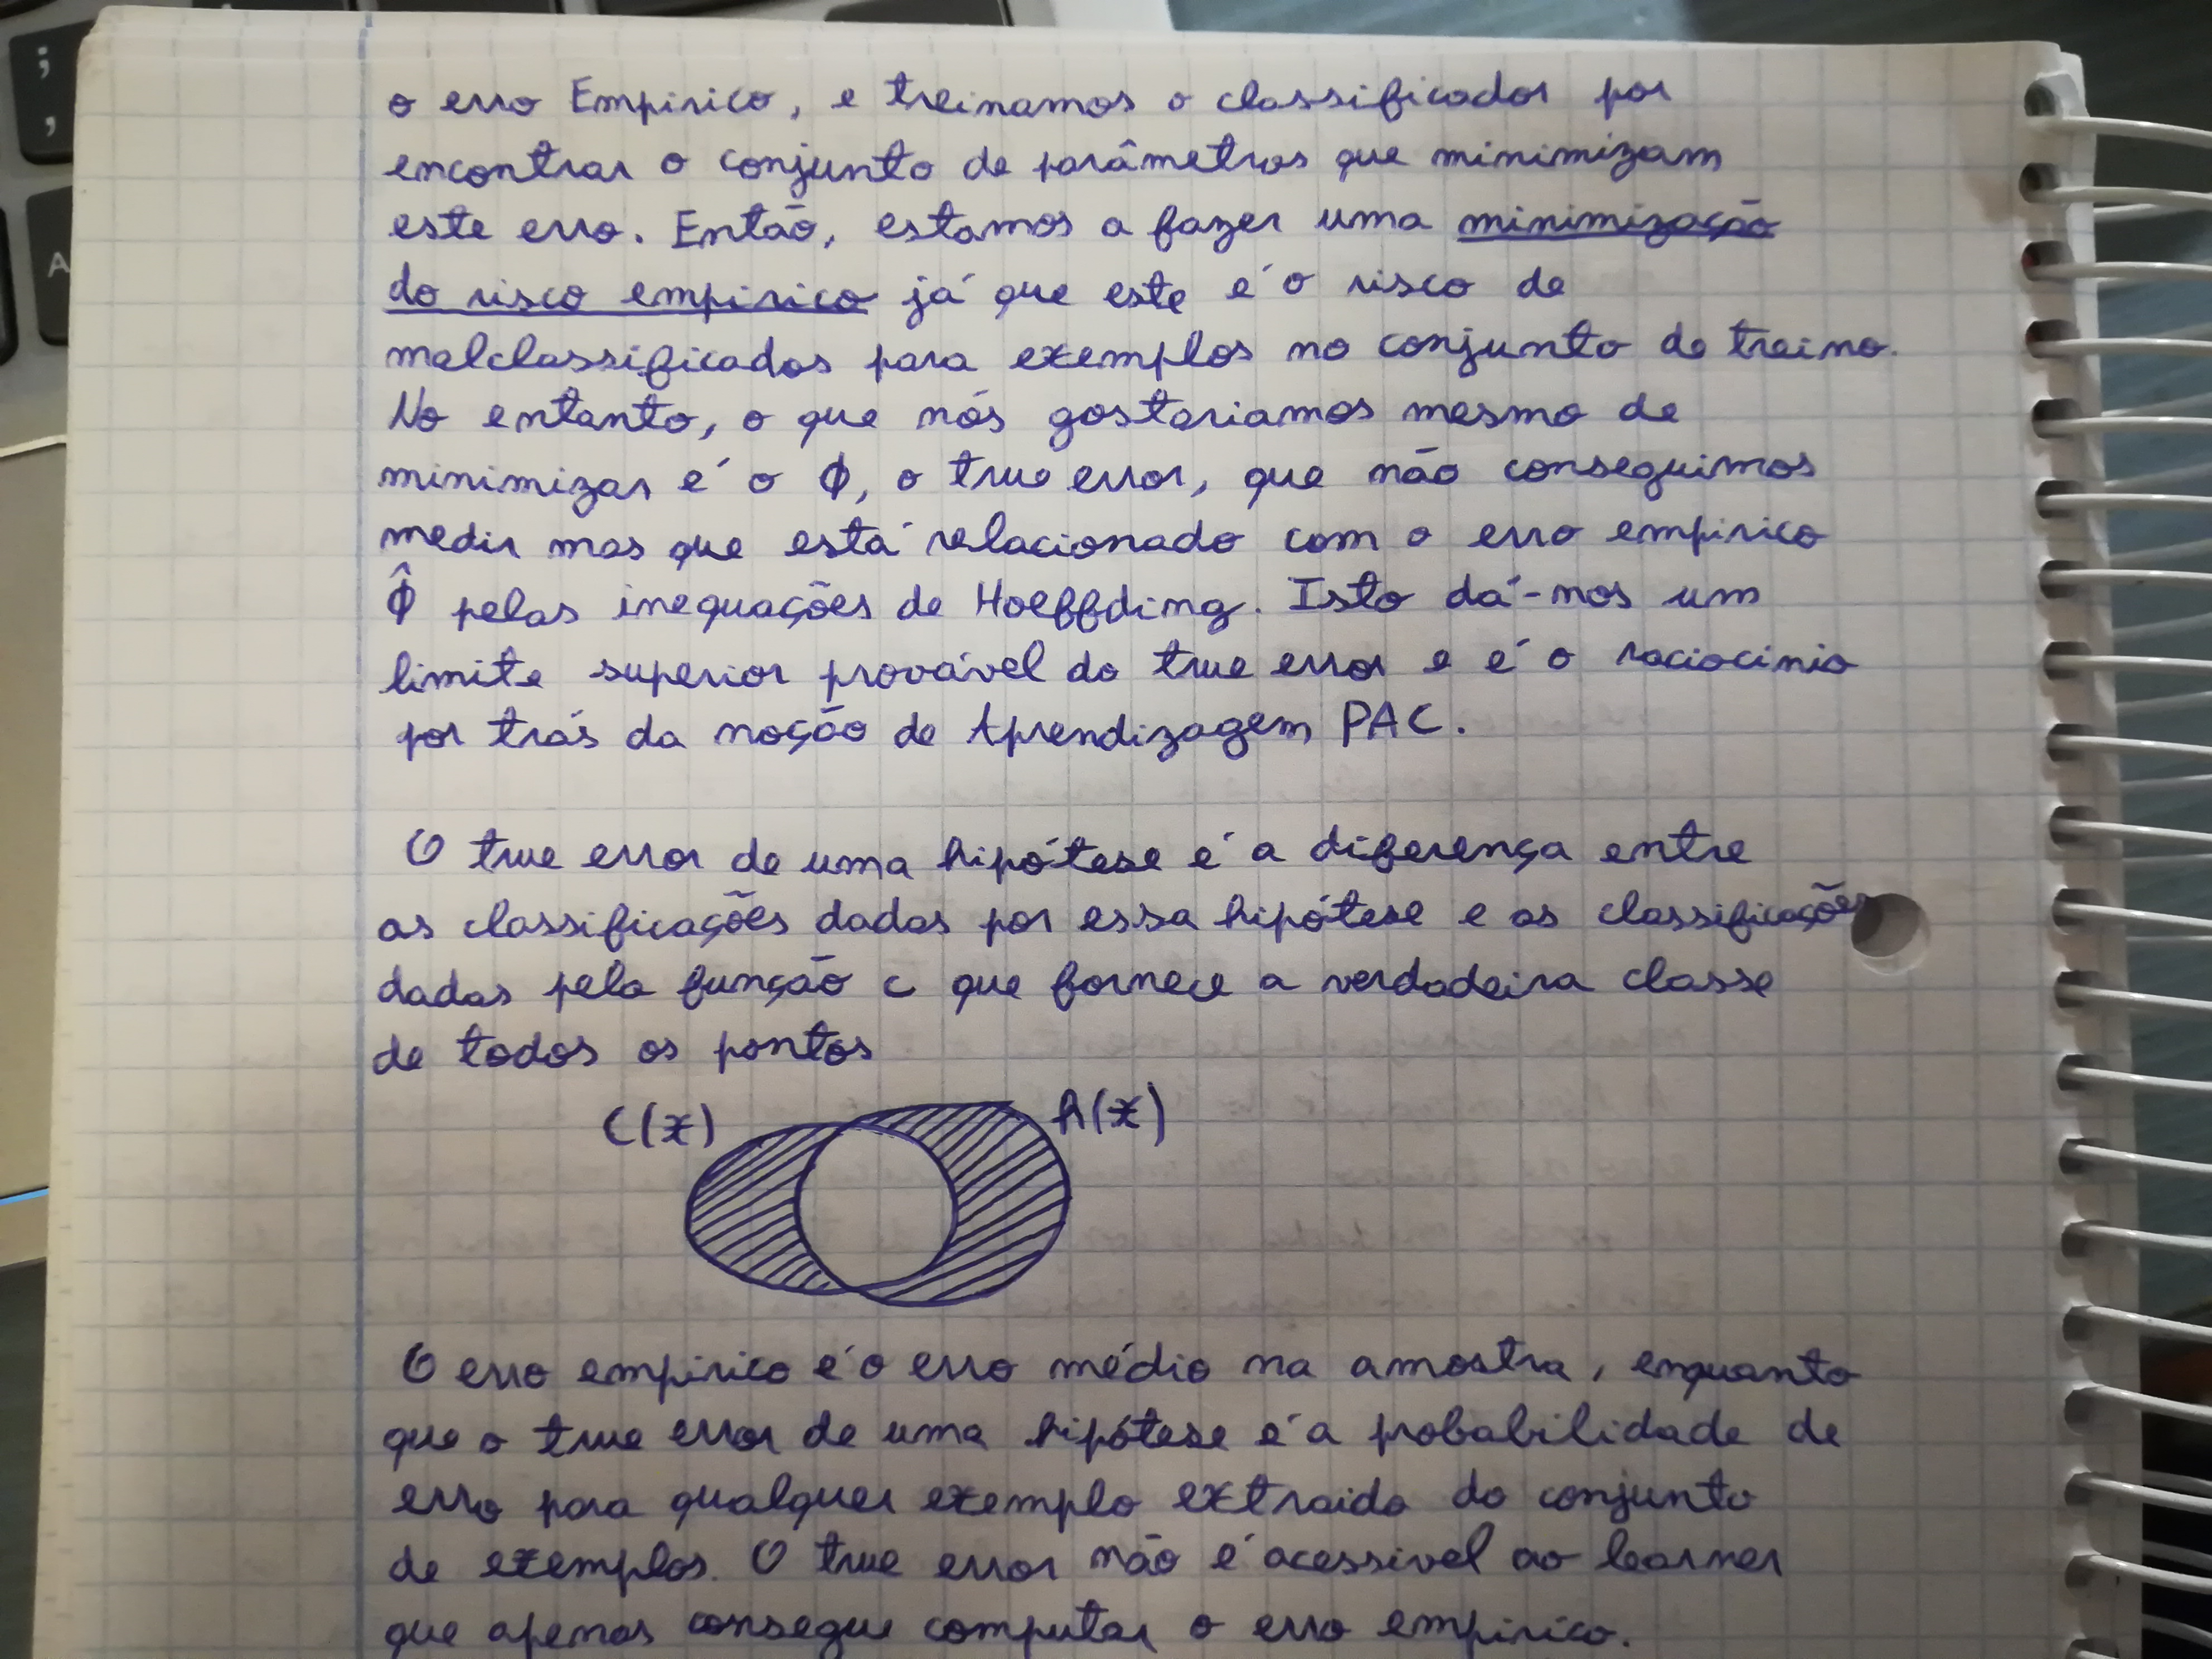 o erro Empirico, e treinamos o classificador por
encontrar o conjunto de parâmetros que minimizam
este erro. Então, estamos a fazer uma minimização
do risco empirico já que este é o risco de
malclassificados para exemplos no conjunto de treino.
No entanto, o que nós gostariamos mesmo de
minimizar é o ϕ, o true error, que não conseguimos
medir mas que está relacionado com o erro empirico
ϕ̂ pelas inequações de Hoeffding. Isto dá-nos um
limite superior provável do true error e é o raciocinio
por trás da noção de Aprendizagem PAC.
O true error de uma hipótese é a diferença entre
as classificações dadas por essa hipótese e as classificações
dadas pela função c que fornece a verdadeira classe
de todos os pontos
C(x) h(x)
O erro empirico é o erro médio na amostra, enquanto
que o true error de uma hipótese é a probabilidade de
erro para qualquer exemplo extraido do conjunto
de exemplos. O true error não é acessivel ao learner
que apenas consegue computar o erro empírico.
;
,
A